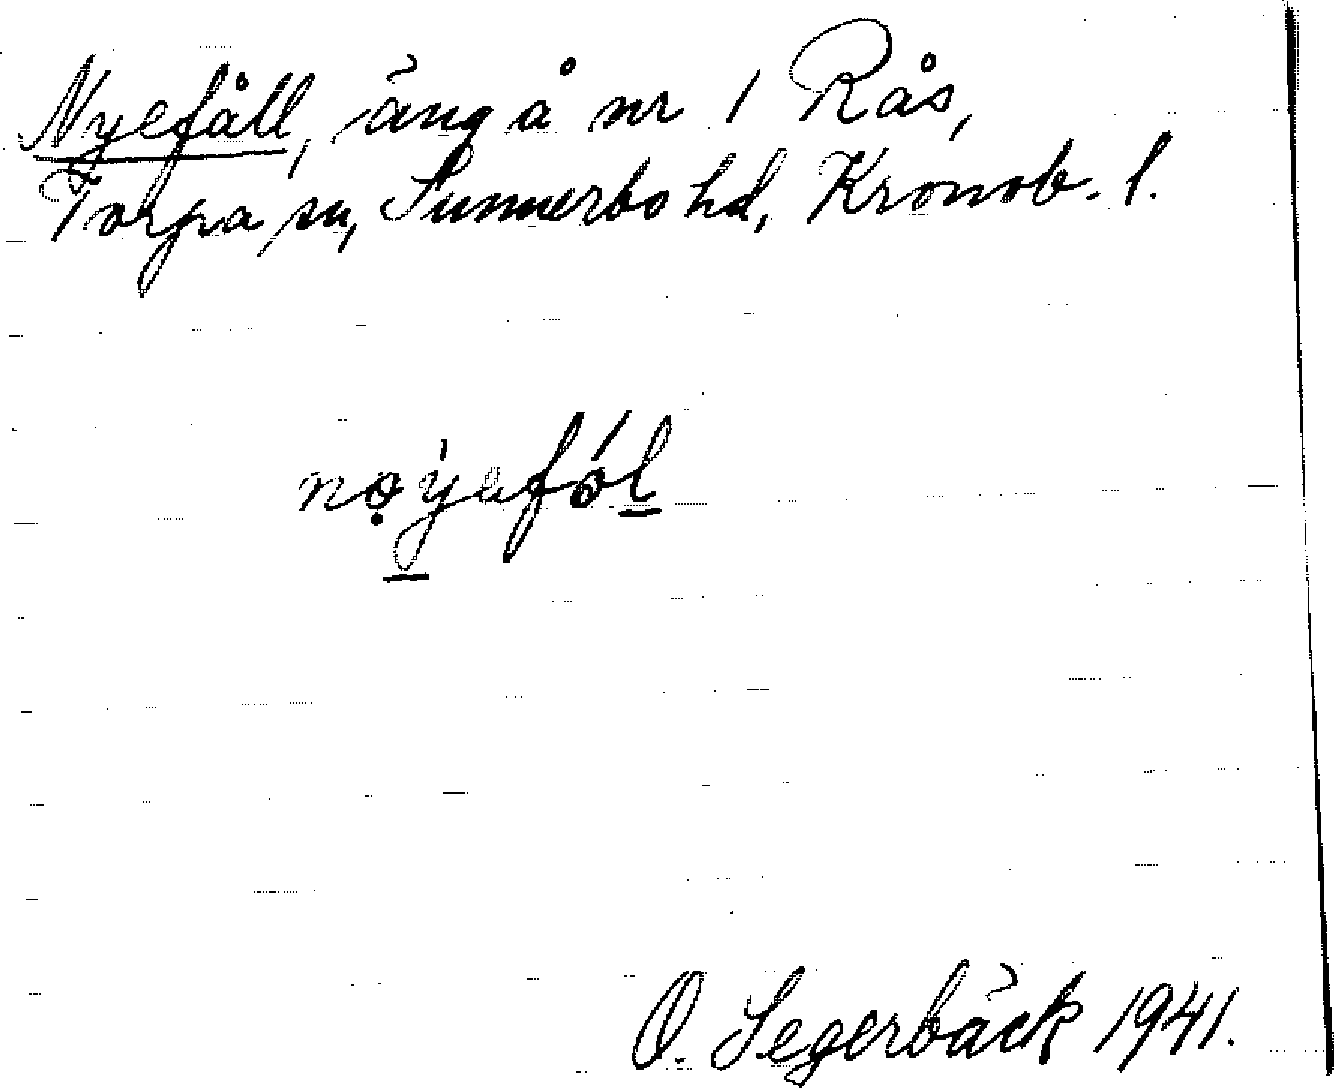 Nyefåll, äng å nr 1 Rås,
Torpa sn, Sunnerbo hd, Kronob. l.
nọ̈yafól
O. Segerbäck 1941.